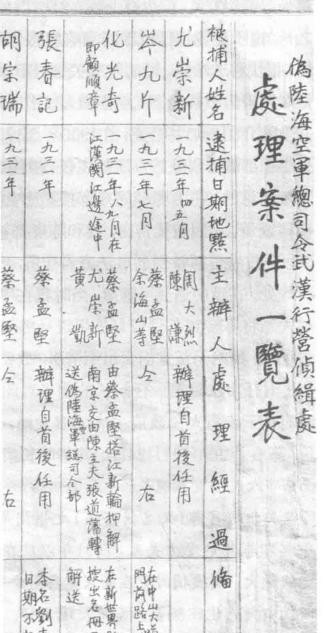 偽陸海空軍總司令武漢行營偵緝處
處理案件一覽表
被捕人姓名 逮捕日期地點 主辦人 處理經過 備
尤崇新 一九三一年四五月 周大烈 陳謙 辦理自首後任用
岑九斤 一九三一年七月 蔡孟堅 余海山等 仝右 在中山大 門前路上
化光奇 即顧順章 一九三一年八九月在江漢關江邊途中 蔡孟堅 尤崇新 黃凱 由蔡孟堅搭江新輪押解南京交由陳立夫張道藩轉送偽陸海軍總司令部 在新世界 搜出名冊 解送
張春記 一九三一年 蔡孟堅 辦理自首後任用 本名劉 日期不
胡宗瑞 一九三一年 蔡孟堅 仝右